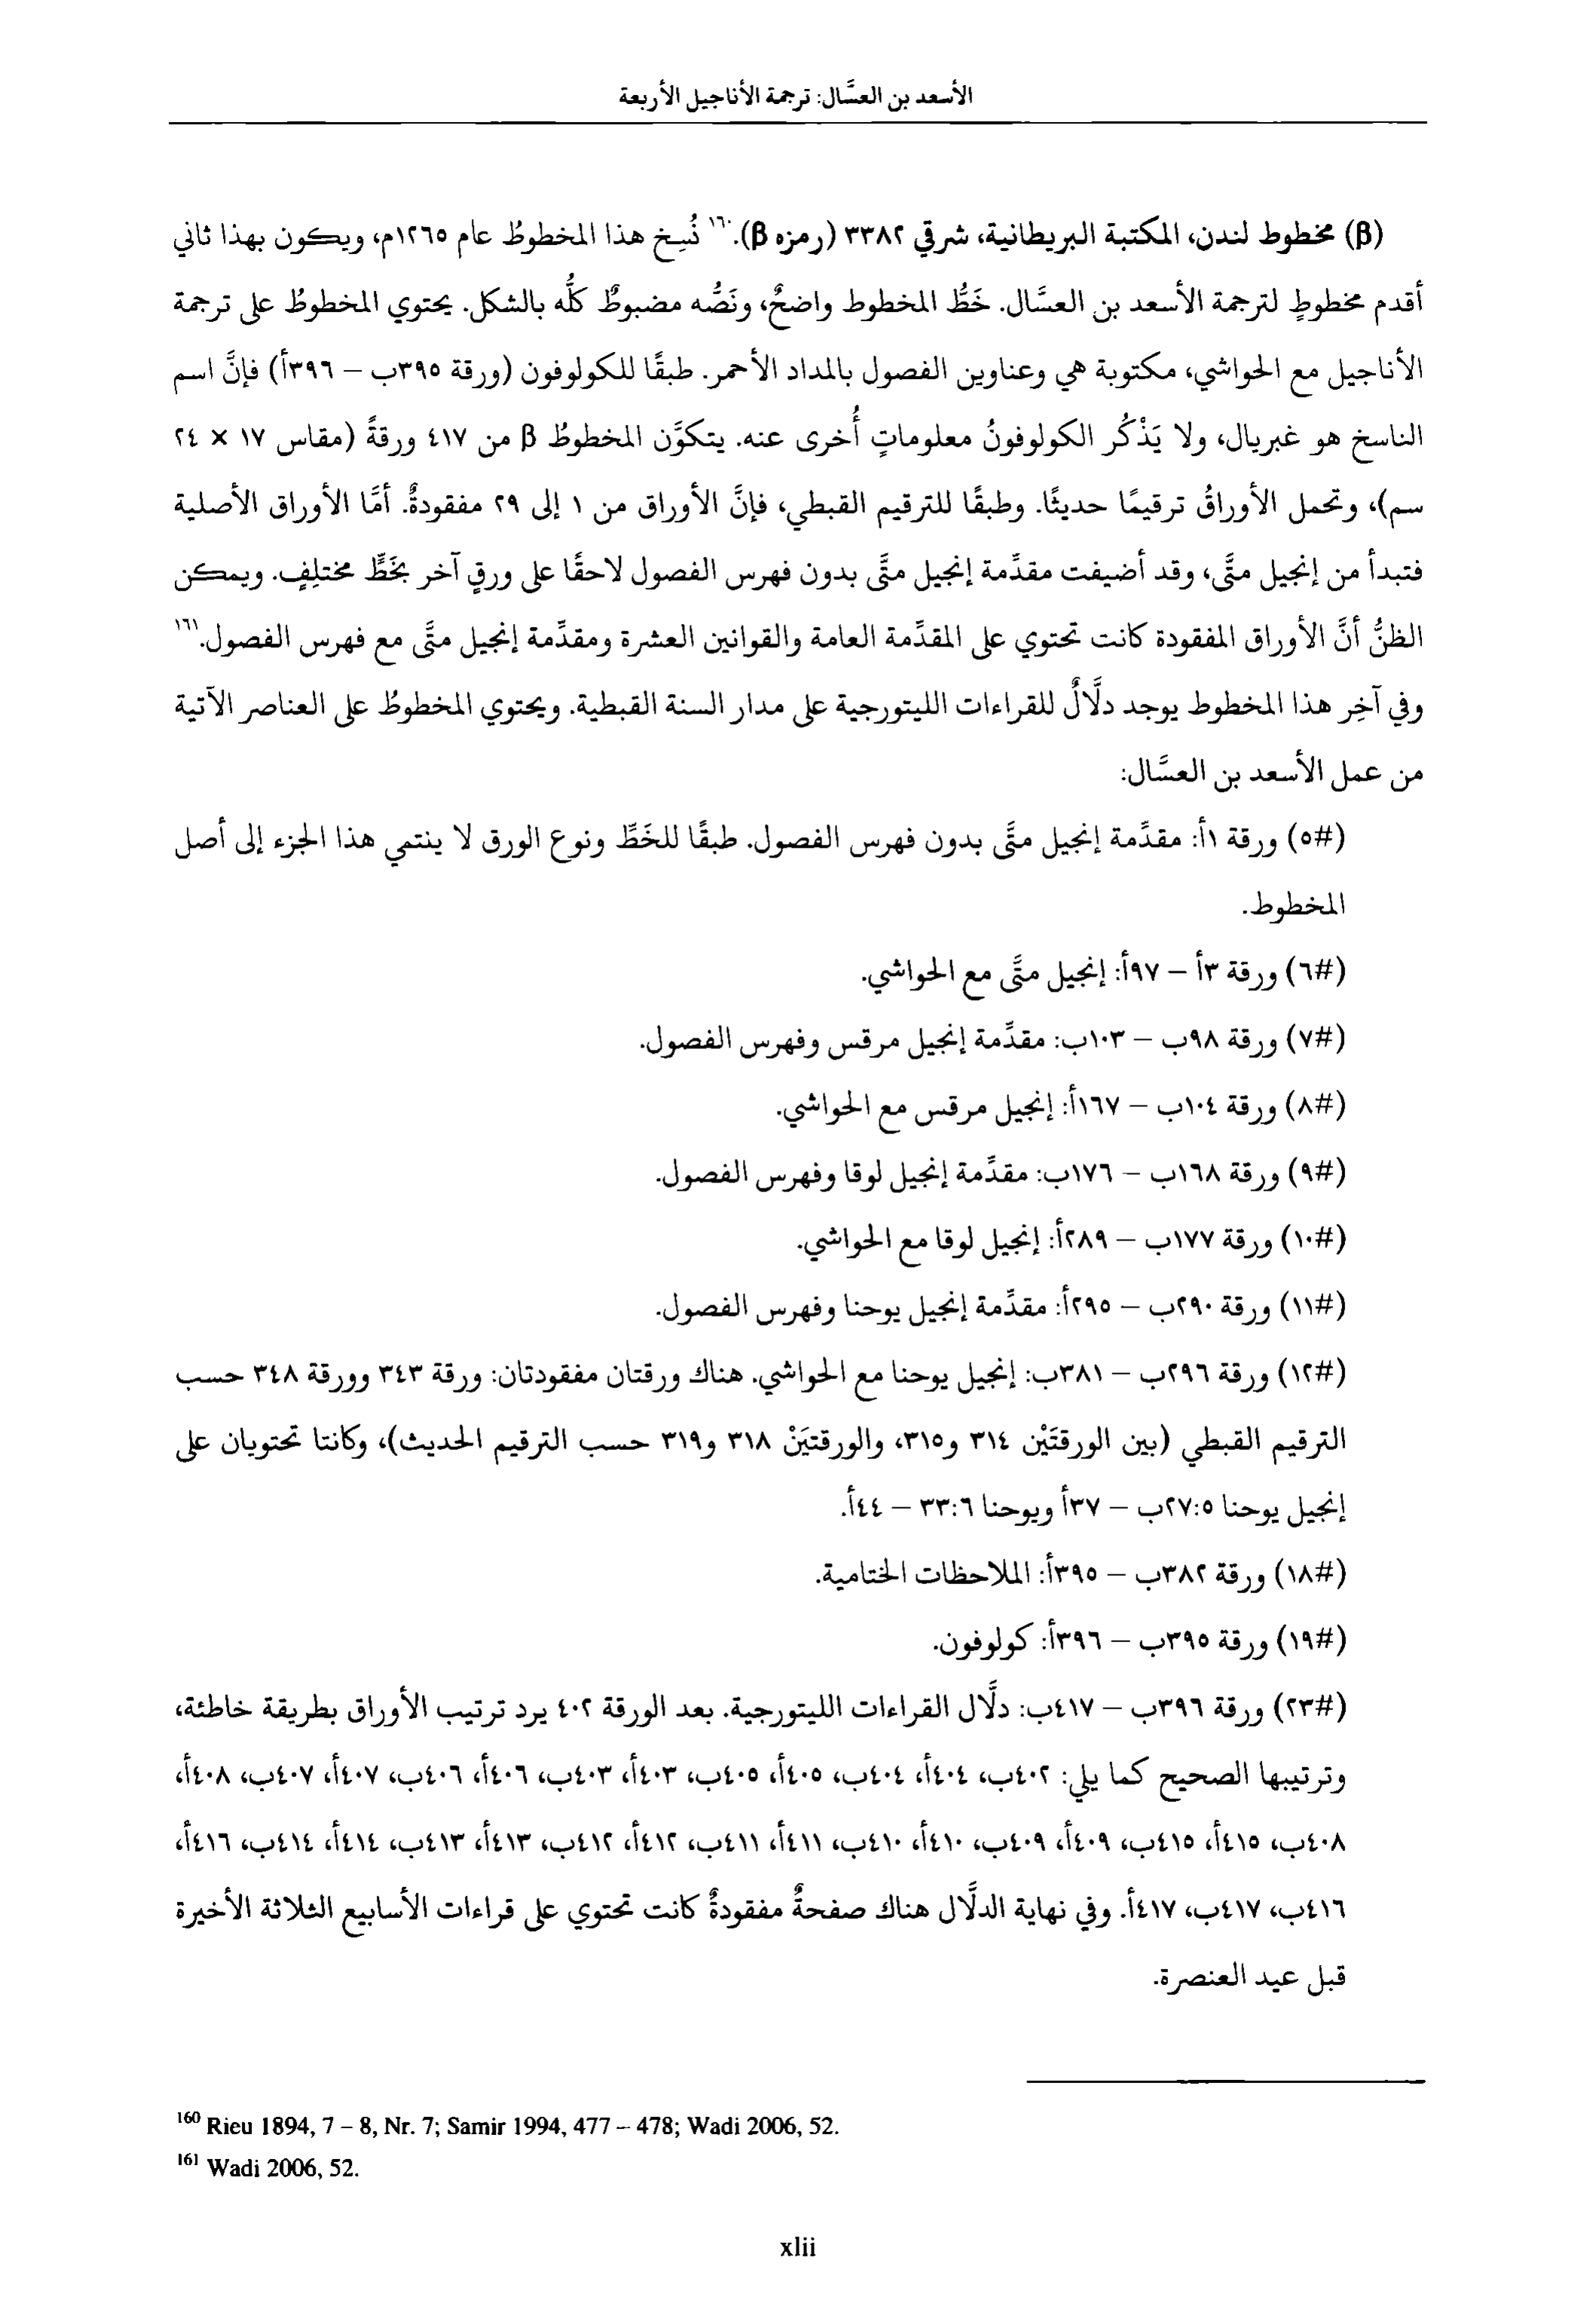 الأسعد بن العسَّال: ترجمة الأناجيل الأربعة
(β) مخطوط لندن، المكتبة البريطانية، شرقي ٣٣٨٢ (رمزه β).١٦٠ نُسِخ هذا المخطوطُ عام ١٢٦٥م، ويكون بهذا ثاني
أقدم مخطوطٍ لترجمة الأسعد بن العسَّال. خَطُّ المخطوط واضحٌ، ونَصُّه مضبوطٌ كلُّه بالشكل. يحتوي المخطوطُ على ترجمة
الأناجيل مع الحواشي، مكتوبة هي وعناوين الفصول بالمداد الأحمر. طبقًا للكولوفون (ورقة ٣٩٥ب – ٣٩٦أ) فإنَّ اسم
الناسخ هو غبريال، ولا يَذْكُر الكولوفونُ معلوماتٍ أُخرى عنه. يتكوَّن المخطوطُ β من ٤١٧ ورقةً (مقاس ١٧ × ٢٤
سم)، وتحمل الأوراقُ ترقيمًا حديثًا. وطبقًا للترقيم القبطي، فإنَّ الأوراق من ١ إلى ٢٩ مفقودةٌ. أمَّا الأوراق الأصلية
فتبدأ من إنجيل متَّى، وقد أضيفت مقدِّمة إنجيل متَّى بدون فهرس الفصول لاحقًا على ورقٍ آخر بخَطٍّ مختلِفٍ. ويمكن
الظنُّ أنَّ الأوراق المفقودة كانت تحتوي على المقدِّمة العامة والقوانين العشرة ومقدِّمة إنجيل متَّى مع فهرس الفصول.١٦١
وفي آخِر هذا المخطوط يوجد دلَّالٌ للقراءات الليتورجية على مدار السنة القبطية. ويحتوي المخطوطُ على العناصر الآتية
من عمل الأسعد بن العسَّال:
(#٥) ورقة ١أ: مقدِّمة إنجيل متَّى بدون فهرس الفصول. طبقًا للخَطِّ ونوع الورق لا ينتمي هذا الجزء إلى أصل
المخطوط.
(#٦) ورقة ٣أ – ٩٧أ: إنجيل متَّى مع الحواشي.
(#٧) ورقة ٩٨ب – ١٠٣ب: مقدِّمة إنجيل مرقس وفهرس الفصول.
(#٨) ورقة ١٠٤ب – ١٦٧أ: إنجيل مرقس مع الحواشي.
(#٩) ورقة ١٦٨ب – ١٧٦ب: مقدِّمة إنجيل لوقا وفهرس الفصول.
(#١٠) ورقة ١٧٧ب – ٢٨٩أ: إنجيل لوقا مع الحواشي.
(#١١) ورقة ٢٩٠ب – ٢٩٥أ: مقدِّمة إنجيل يوحنا وفهرس الفصول.
(#١٢) ورقة ٢٩٦ب – ٣٨١ب: إنجيل يوحنا مع الحواشي. هناك ورقتان مفقودتان: ورقة ٣٤٣ وورقة ٣٤٨ حسب
الترقيم القبطي (بين الورقتَيْن ٣١٤ و٣١٥، والورقتيَنْ ٣١٨ و٣١٩ حسب الترقيم الحديث)، وكانتا تحتويان على
إنجيل يوحنا ٢٧:٥ب – ٣٧أ ويوحنا ٣٣:٦ – ٤٤أ.
(#١٨) ورقة ٣٨٢ب – ٣٩٥أ: الملاحظات الختامية.
(#١٩) ورقة ٣٩٥ب – ٣٩٦أ: كولوفون.
(#٢٣) ورقة ٣٩٦ب – ٤١٧ب: دلَّال القراءات الليتورجية. بعد الورقة ٤٠٢ يرد ترتيب الأوراق بطريقة خاطئة،
وترتيبها الصحيح كما يلي: ٤٠٢ب، ٤٠٤أ، ٤٠٤ب، ٤٠٥أ، ٤٠٥ب، ٤٠٣أ، ٤٠٣ب، ٤٠٦أ، ٤٠٦ب، ٤٠٧أ، ٤٠٧ب، ٤٠٨أ،
٤٠٨ب، ٤١٥أ، ٤١٥ب، ٤٠٩أ، ٤٠٩ب، ٤١٠أ، ٤١٠ب، ٤١١أ، ٤١١ب، ٤١٢أ، ٤١٢ب، ٤١٣أ، ٤١٣ب، ٤١٤أ، ٤١٤ب، ٤١٦أ،
٤١٦ب، ٤١٧ب، ٤١٧أ. وفي نهاية الدلَّال هناك صفحةٌ مفقودةٌ كانت تحتوي على قراءات الأسابيع الثلاثة الأخيرة
قبل عيد العنصرة.
160 Rieu 1894, 7 – 8, Nr. 7; Samir 1994, 477 – 478; Wadi 2006, 52.
161 Wadi 2006, 52.
xlii